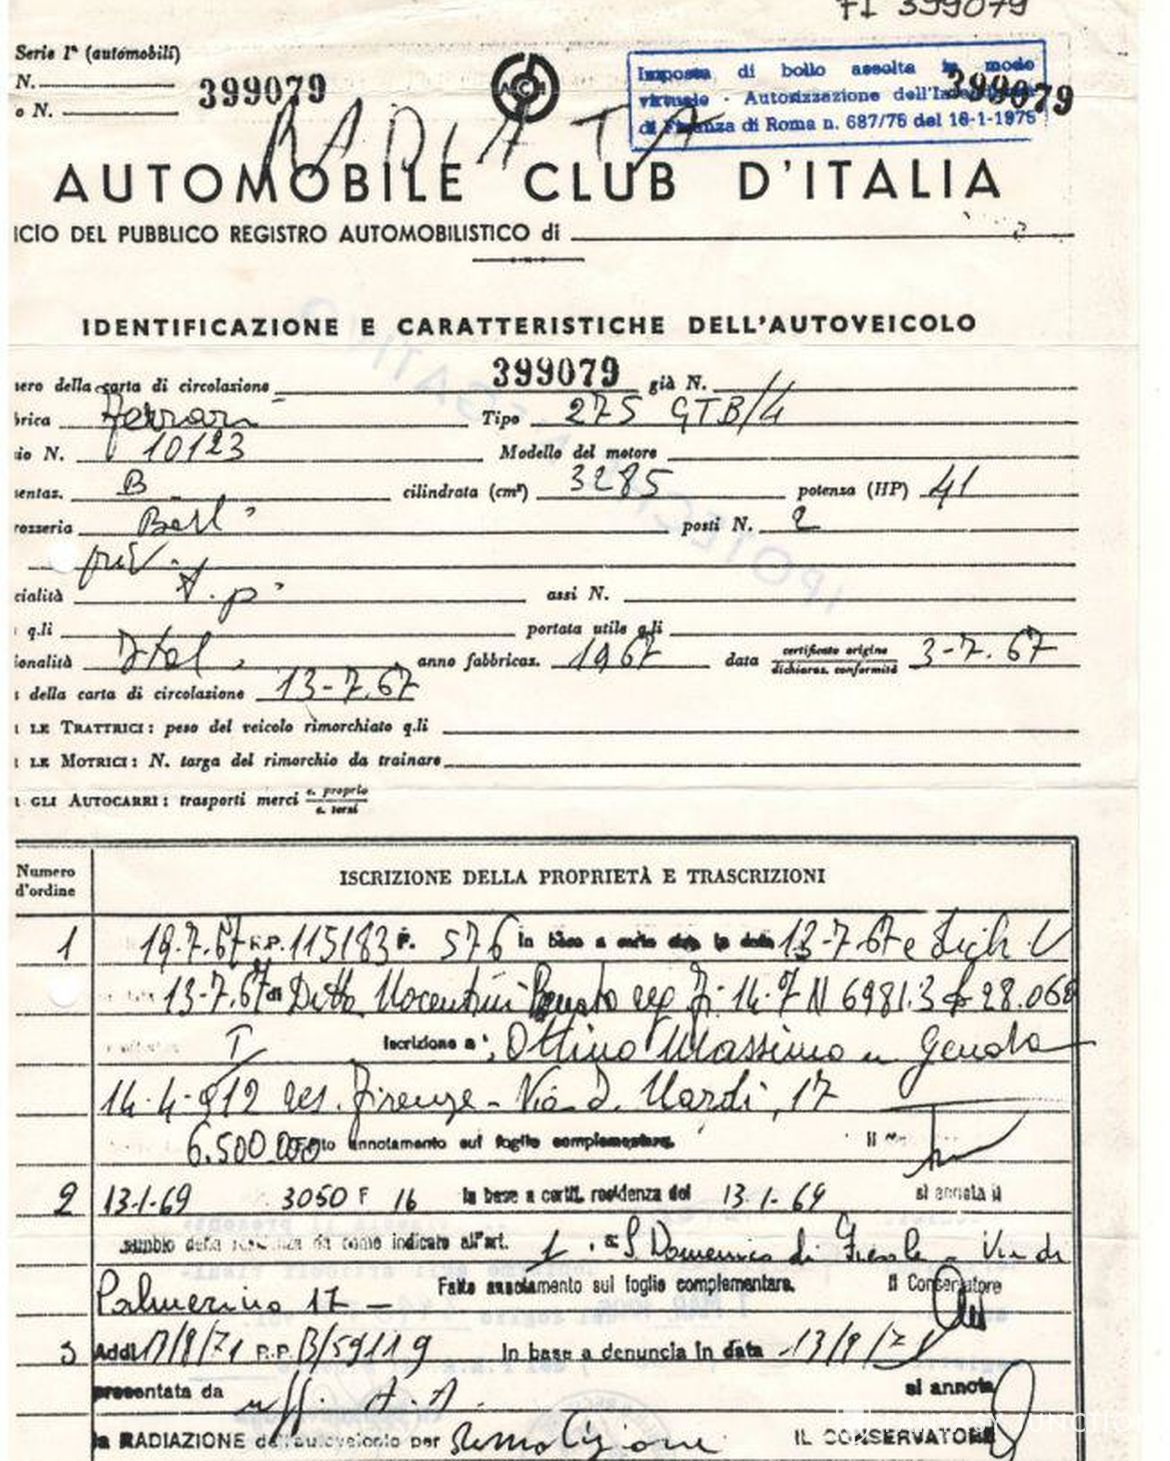 FI 399079
Serie Iª (automobili)
N. 399079
o N.
Imposta di bollo assolta in modo
virtuale - Autorizzazione
di Finanza di Roma n. 687/75 del 18-1-1975
399079
ACI
RADIATA
AUTOMOBILE CLUB D'ITALIA
ICIO DEL PUBBLICO REGISTRO AUTOMOBILISTICO di
IDENTIFICAZIONE E CARATTERISTICHE DELL'AUTOVEICOLO
ero della carta di circolazione 399079 già N.
brica Ferrari Tipo 275 GTB/4
io N. 10123 Modello del motore
entaz. B cilindrata (cm³) 3285 potenza (HP) 41
rozzeria Berl posti N. 2
priv.
cialità T.p. assi N.
q.li portata utile q.li
ionalità Ital. anno fabbricaz. 1967 data certificato origine dichiaraz. conformità 3-7.67
della carta di circolazione 13-7.67
LE TRATTRICI: peso del veicolo rimorchiato q.li
LE MOTRICI: N. targa del rimorchio da trainare
GLI AUTOCARRI: trasporti merci c. proprio c. terzi
Numero d'ordine ISCRIZIONE DELLA PROPRIETÀ E TRASCRIZIONI
1 19.7.67 R.P. 115183 F. 576 in base a 13-7.67 e dich V
13-7.67 di Ditta Nocentini reg Fi 14.7 N 6981.3 28.068
Iscrizione a Ottino Massimo n Genova
14.4.912 res. Firenze - Via J. Nardi, 17
6.500.000 annotamento sul foglio complementare. Il
2 13.1.69 3050 F 16 In base a certif. residenza del 13.1.69 si annota il
cambio della residenza da come indicato all'art. 1 a S Domenico di Fiesole - Via di
Palmerino 17 - Fatto annotamento sul foglio complementare. Il Conservatore
3 Addì 13/8/71 R.P. B/59119 In base a denuncia in data 13/8/71
presentata da uff. A.A. si annota
la RADIAZIONE dell'autoveicolo per Demolizione IL CONSERVATORE